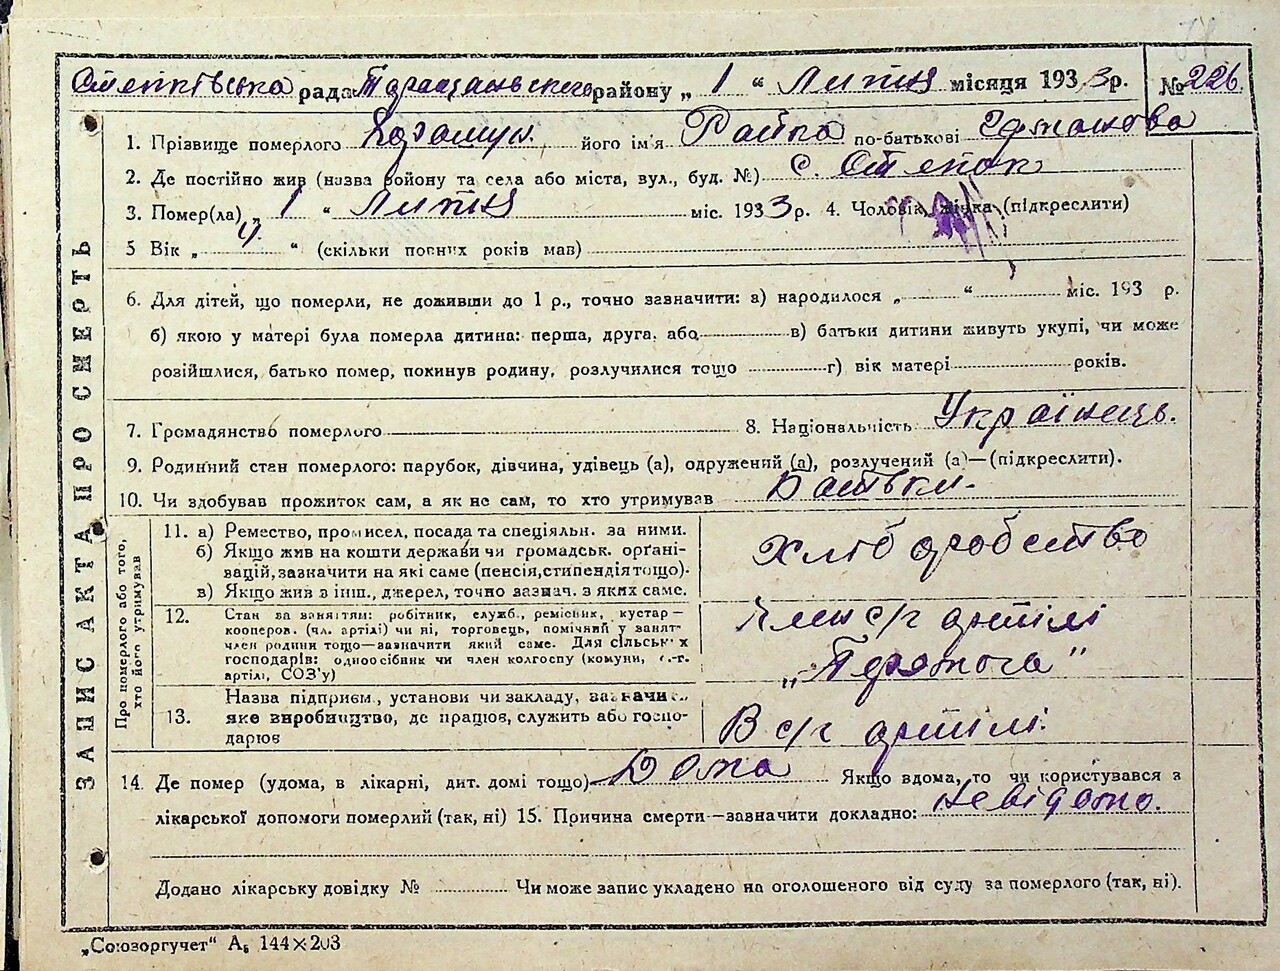 Степківська рада Таращанського району „ 1 “ Липня місяця 1933 р. № 226.
1. Прізвище померлого його ім'я Райка по-батькові
2. Де постійно жив (назва району та села або міста, вул., буд. №) с. Степок
3. Помер(ла) „ 1 “ Липня міс. 1933 р. 4. Чоловік, жінка (підкреслити)
5 Вік „ 4 “ (скільки повних років мав)
6. Для дітей, що померли, не доживши до 1 р., точно зазначити: а) народилося „ “ міс. 193 р.
б) якою у матері була померла дитина: перша, друга, або в) батьки дитини живуть укупі, чи може
розійшлися, батько помер, покинув родину, розлучилися тощо г) вік матері років.
7. Громадянство померлого 8. Національність Українець.
9. Родинний стан померлого: парубок, дівчина, удівець (а), одружений (а), розлучений (а)—(підкреслити).
10. Чи здобував прожиток сам, а як не сам, то хто утримував Батьки.
ЗАПИС АКТА ПРО СМЕРТЬ
Про померлого або того, хто його утримував
11. а) Ремество, промисел, посада та спеціяльн. за ними.
б) Якщо жив на кошти держави чи громадськ. органі-
зацій, зазначити на які саме (пенсія, стипендія тощо).
в) Якщо жив з інш., джерел, точно зазнач. з яких саме.
Хліборобство
12. Стан за заняттям: робітник, служб., ремісник, кустар—
кооперов. (чл. артілі) чи ні, торговець, помічний у занят.
член родини тощо—зазначити який саме. Для сільськ х
господарів: одноосібник чи член колгоспу (комуни, с.-г.
артілі, СОЗ'у)
Член с/г артілі
„Перемога“
13. Назва підприєм., установи чи закладу, зазначит.
яке виробництво, де працюв, служить або госпо-
дарюв
В с/г артілі.
14. Де помер (удома, в лікарні, дит. домі тощо) Дома Якщо вдома, то чи користувався з
лікарської допомоги померлий (так, ні) 15. Причина смерти—зазначити докладно: Невідомо.
Додано лікарську довідку № Чи може запис укладено на оголошеного від суду за померлого (так, ні).
„Союзоргучет“ А₅ 144×203